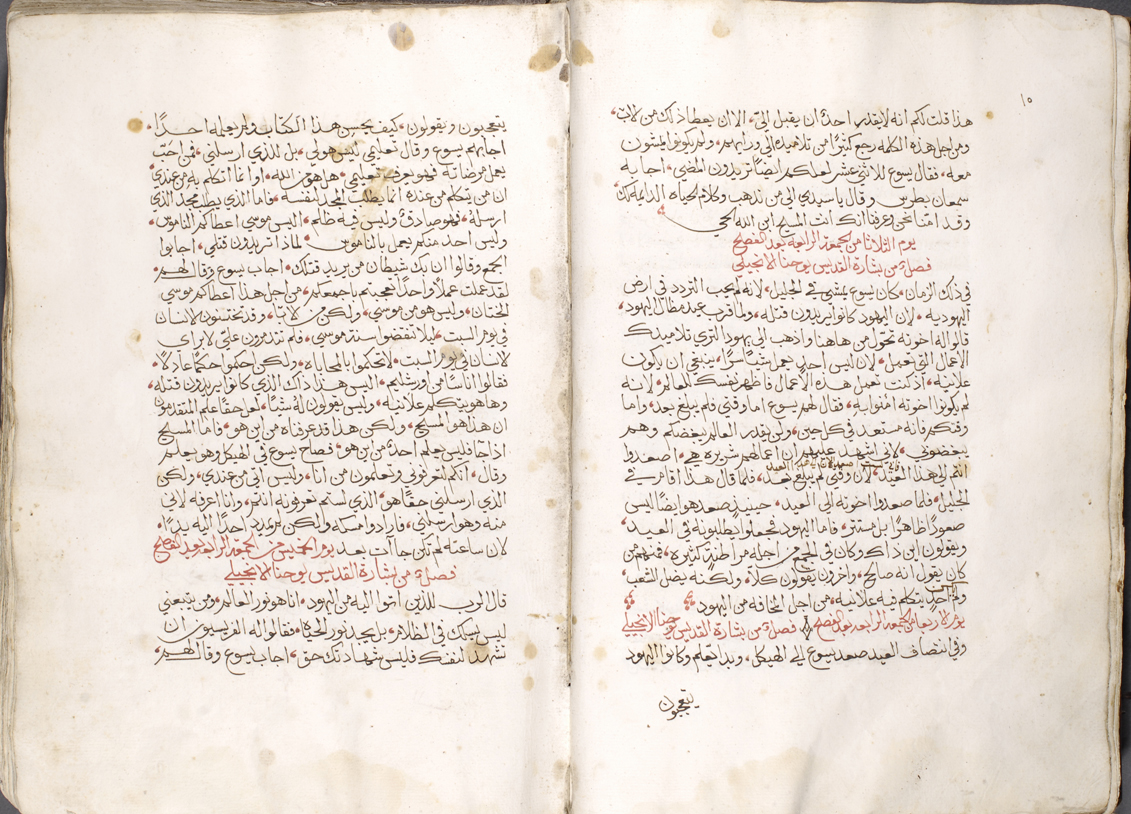 ١٥
هذا قلت لكم انه لا يقدر احدٌ ان يقبل اليّ، الا ان يعطا ذلك من الاب،
ومن اجل هذه الكلمه رجع كثيرٌ من تلاميذه الى ورايهم، ولم يكونوا يمشون
معه، فقال يسوع للاثني عشر لعلكم ايضاً تريدون المضي، اجابه
سمعان بطرس وقال يا سيدي الى من نذهب وكلام الحياه الدايمه لك
وقد امنا نحن وعرفنا انك انت المسيح ابن الله الحي
يوم الثلاثا من الجمعه الرابعه بعد الفصح
فصلٌ من بشارة القديس يوحنا الانجيلي
في ذلك الزمان، كان يسوع يمشي في الجليل، لانه لم يحب التردد في ارض
اليهوديه، لان اليهود كانوا يريدون قتله، ولما قرب عيد مظال اليهود،
قالوا له اخوته تحول من هاهنا واذهب الى يهودا لترى تلاميذك
الاعمال التي تعمل، لان ليس احدٍ يعمل شياً سراً، يبتغي ان يكون
علانيه، اذ كنت تعمل هذه الاعمال فاظهر نفسك للعالم، لانه
لم يكونوا اخوته امنوا به، فقال لهم يسوع اما وقتي فلم يبلغ بعد، واما
وقتكم فانه مستعد في كل حين، ولن يقدر العالم يبغضكم وهم
يبغضوني، لاني اشهد عليهم ان اعمالهم شريره هي، اصعدوا
انتم الى هذا العيد، لان وقتي لم يبلغ بعد، فلما قال هذا اقام في
الجليل، فلما صعدوا اخوته الى العيد، حينيذٍ صعد هو ايضاً ليس
صعوداً ظاهراً بل مستتر، فاما اليهود فجعلوا يطلبونه في العيد،
ويقولون اين ذاك وكان في الجمع من اجله مراطنة كثيره، فمنهم من
كان يقول انه صالح، واخرون يقولون كلا، ولكنه يضل الشعب،
ولم احدٌ يتكلم فيه علانيه، من اجل المخافه من اليهود
يوم الاربعا من الجمعه الرابعه بعد الفصح فصلٌ من بشارة القديس يوحنا الانجيلي
وفي انتصاف العيد صعد يسوع الى الهيكل، وبدا يعلم وكانوا اليهود
يتعجبون
يتعجبون ويقولون، كيف يحسن هذا الكتاب ولم يعلمه احداً،
اجابهم يسوع وقال تعليمي ليس هو لي، بل للذي ارسلني، فمن احب
يعمل مرضاته فهو يعرف تعليمي، هل هو من الله، او انا اتكلم به من عندي
ان من يتكلم من عنده انما يطلب المجد لنفسه، واما الذي يطلب مجد الذي
ارسله، فهو صادقٌ وليس فيه ظلم، اليس موسى اعطاكم الناموس،
وليس احد منكم يعمل بالناموس، لماذا تريدون قتلي، اجابوا
الجمع وقالوا ان بك شيطان من يريد قتلك، اجاب يسوع وقال لهم،
لقد عملت عملاً واحداً فعجبتم باجمعكم، من اجل هذا اعطاكم موسى
الختان، وليس هو من موسى، ولكن من الابا، وقد تختنون الانسان
في يوم السبت، ليلا تنقضوا سنة موسى، فلم تتذمرون علي لابراي
الانسان في يوم السبت، لا تحكموا بالمحاباه، ولكن احكموا حكماً عادلاً،
فقالوا اناساً من اورشليم، اليس هذا ذاك الذي كانوا يريدون قتله،
وها هو يتكلم علانيه، وليس يقولون له شياً، لعل حقاً علم المتقدمون
ان هذا هو المسيح، ولكن هذا قد عرفناه من اين هو، فاما المسيح
اذا جا فليس يعلم احدٌ من اين هو، فصاح يسوع في الهيكل وهو يعلم
وقال، انكم لتعرفوني وتعلمون من انا، وليس اتي من عندي، ولكن
الذي ارسلني حقاً هو، الذي لستم تعرفونه انتم، وانا اعرفه لاني
منه وهو ارسلني، فارادوا مسكه ولكن لم يمدد احداً اليه يداً،
لان ساعته لم تكن جاآت بعد يوم الخميس من الجمعه الرابعه بعد الفصح
فصلٌ من بشارة القديس يوحنا الانجيلي
قال الرب للذين اتوا اليه من اليهود، انا هو نور العالم، ومن يتبعني
ليس يسلك في الظلام، بل يجد نور الحياه، فقالوا له الفريسيون ان
تشهد لنفسك فليس شهادتك حق، اجاب يسوع وقال لهم،